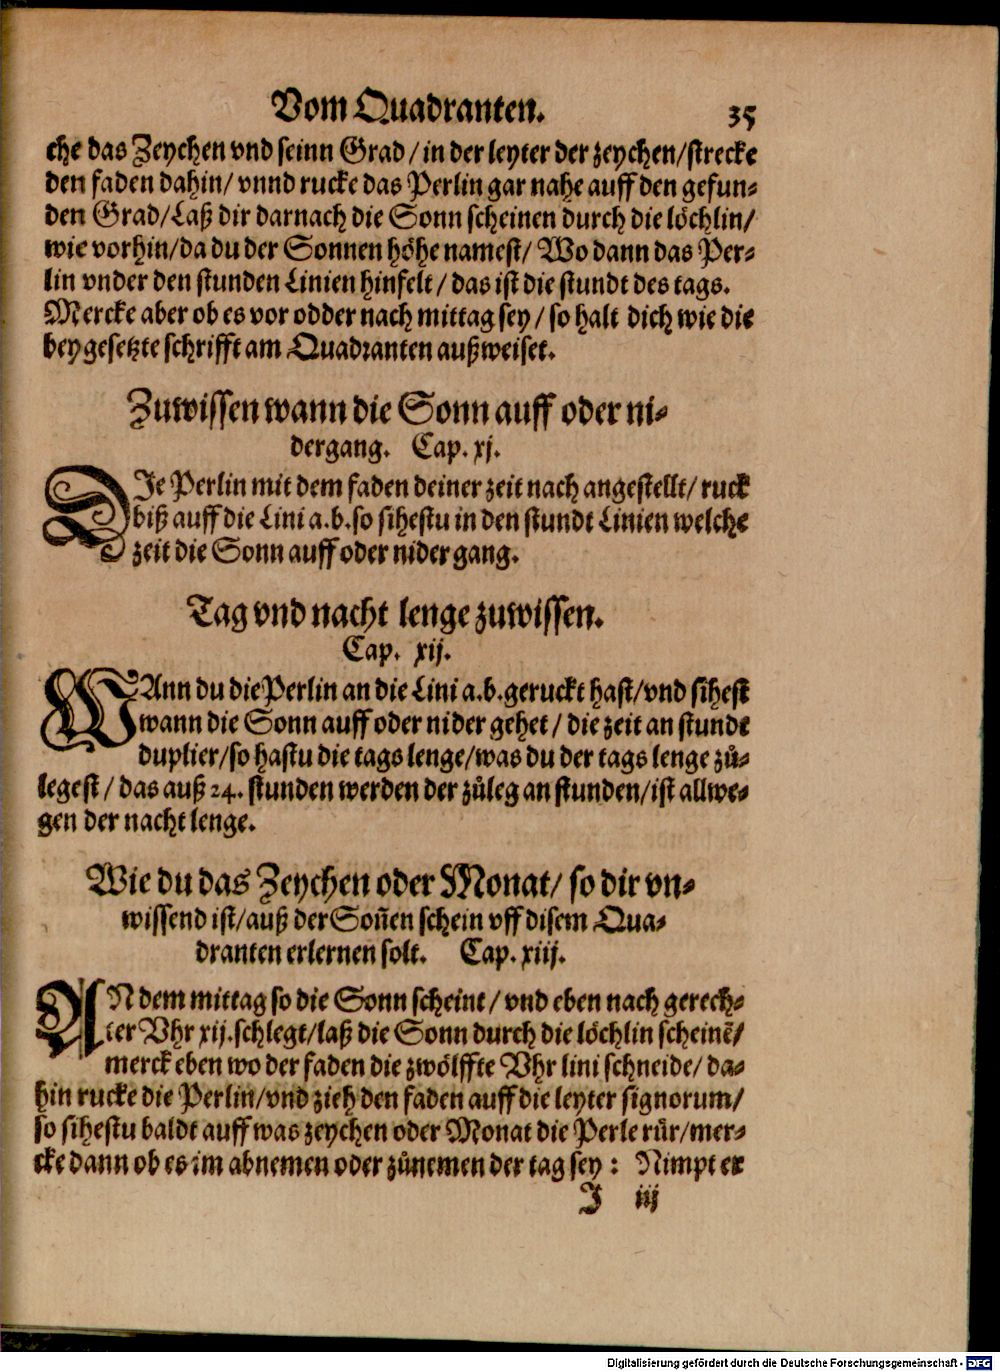 Vom Quadranten. 35
che das Zeychen vnd seinn Grad / in der leyter der zeychen/strecke
den faden dahin/ vnnd rucke das Perlin gar nahe auff den gefun⸗
den Grad/Laß dir darnach die Sonn scheinen durch die löchlin/
wie vorhin/da du der Sonnen höhe namest/ Wo dann das Per⸗
lin vnder den stunden Linien hinfelt / das ist die stundt des tags.
Mercke aber ob es vor odder nach mittag sey / so halt dich wie die
beygesetzte schrifft am Quadranten außweiset.
Zuwissen wann die Sonn auff oder ni⸗
dergang. Cap. xj.
DJe Perlin mit dem faden deiner zeit nach angestellt/ ruck
biß auff die Lini a.b.so sihestu in den stundt Linien welche
zeit die Sonn auff oder nider gang.
Tag vnd nacht lenge zuwissen.
Cap. xij.
WAnn du die Perlin an die Lini a.b.geruckt hast/vnd sihest
wann die Sonn auff oder nider gehet / die zeit an stunde
duplier/so hastu die tags lenge/was du der tags lenge zů⸗
legest / das auß 24. stunden werden der zůleg an stunden/ist allwe⸗
gen der nacht lenge.
Wie du das Zeychen oder Monat/ so dir vn⸗
wissend ist/auß der Soñen schein vff disem Qua⸗
dranten erlernen solt. Cap. xiij.
AN dem mittag so die Sonn scheint / vnd eben nach gerech⸗
ter Vhr xij.schlegt/laß die Sonn durch die löchlin scheinẽ/
merck eben wo der faden die zwölffte Vhr lini schneide/ da⸗
hin rucke die Perlin/vnd zieh den faden auff die leyter signorum/
so sihestu baldt auff was zeychen oder Monat die Perle růr/mer⸗
cke dann ob es im abnemen oder zůnemen der tag sey : Nimpt er
J iij
Digitalisierung gefördert durch die Deutsche Forschungsgemeinschaft - DFG